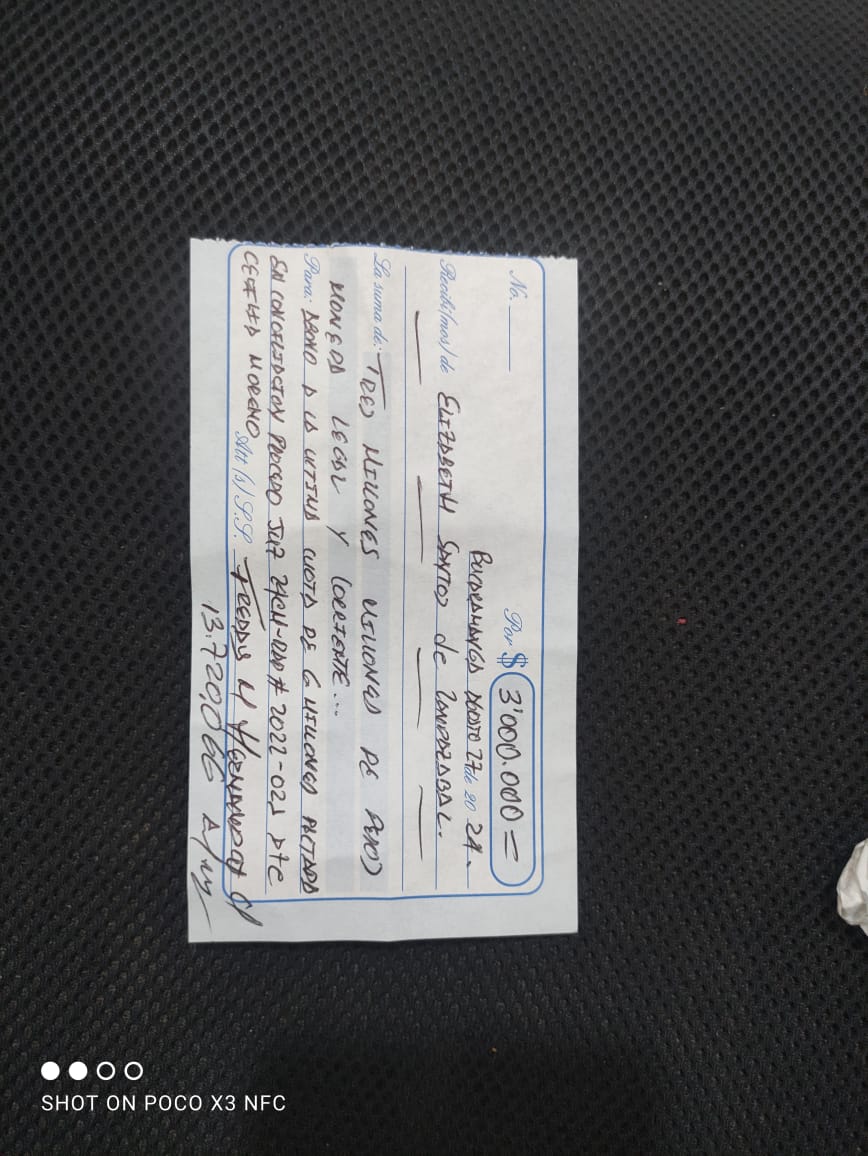 No.
Por $ 3'000.000=
Bucaramanga Agosto 27 de 20 24.
Recibí(mos) de Elizabeth Santos de
La suma de: TRES MILLONES MILLONES DE PESOS
MONEDA LEGAL Y CORRIENTE...
Para: ABONO A LA ULTIMA CUOTA DE 6 MILLONES PACTADA
EN CONCILIACION PROCESO JUZ 29CM-RAD # 2022-021 Dte
CECILIA MORENO Att (s) S.S. Freddy
13.720.066
SHOT ON POCO X3 NFC